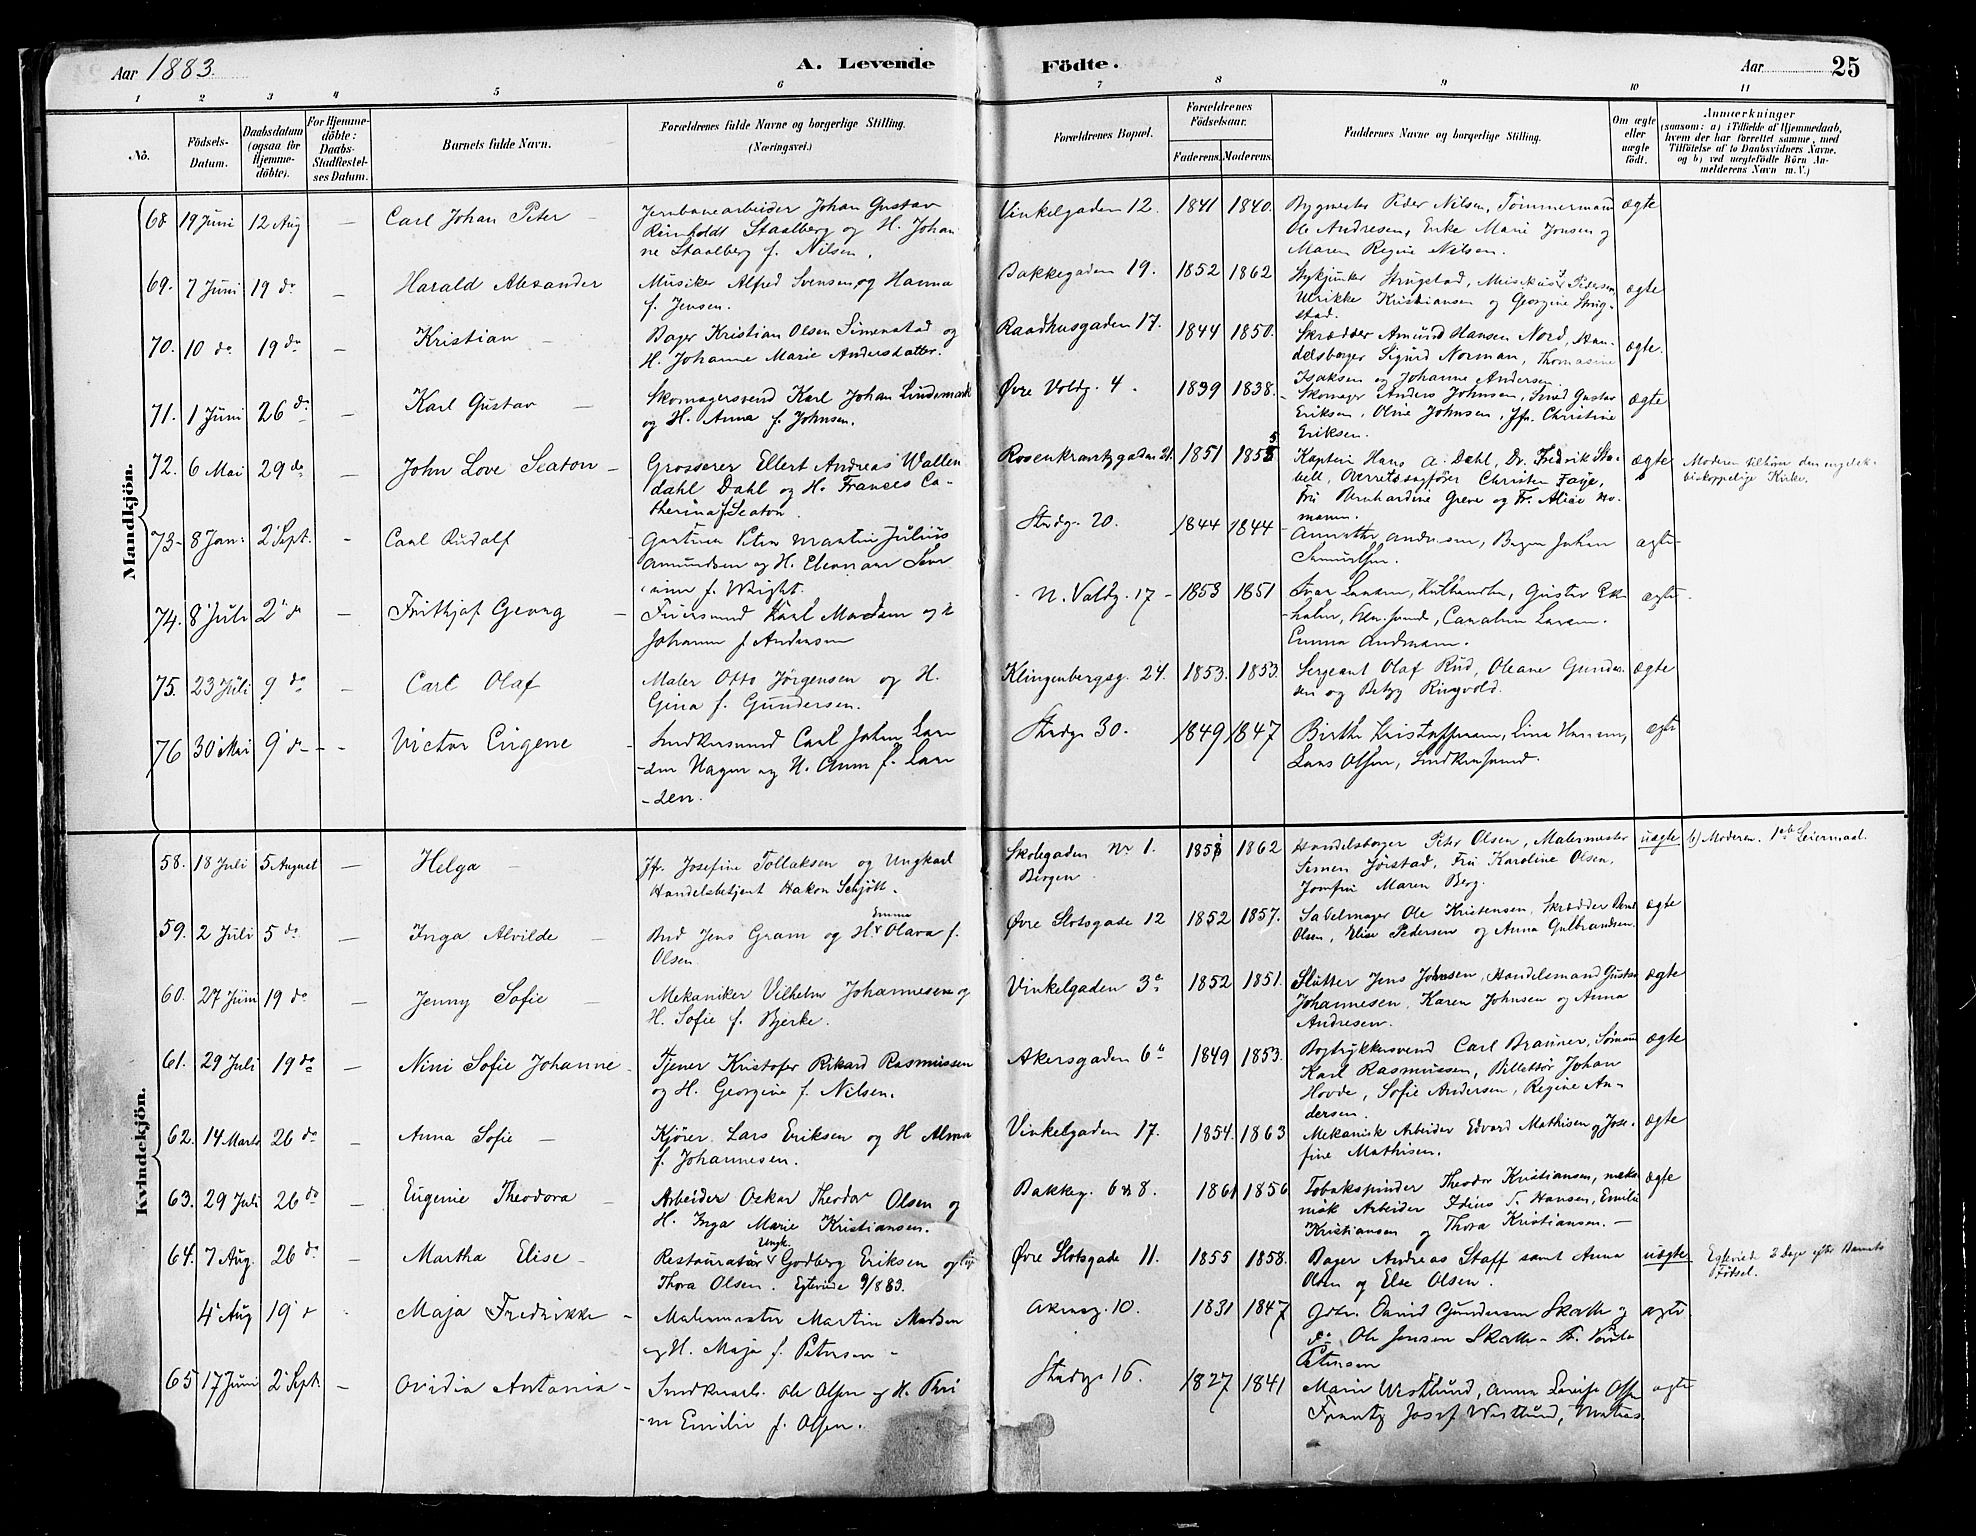 Aar 1883.
A. Levende Födte.
Aar 25
1 2 3 4 5 6 7 8 9 10 11
No.
Födsels-Datum.
Daabsdatum (ogsaa for Hjemme-döbte).
For Hjemme-döbte: Daabs-Stadfæstel-ses Datum.
Barnets fulde Navn.
Forældrenes fulde Navne og borgerlige Stilling. (Næringsvei.)
Forældrenes Bopæl.
Forældrenes Födselsaar.
Faderens. Moderens.
Faddernes Navne og borgerlige Stilling.
Om ægte eller uægte födt.
Anmærkninger
(saasom: a) i Tilfælde af Hjemmedaab, hvem der har forrettet samme, med Tilföielse af to Daabsvidners Navne. og b) ved uægtefödte Börn An-melderens Navn m. V.)
Mandkjön.
68 19 Juni 12 Aug — Carl Johan Peter — Jernbanearbeider Johan Gustav Vinkelgaden 12. 1841 1840. Bygmester Peder Nilsen, Tömmermand ægte
Reinholdt Staalberg og H. Johan Ole Andresen, Erike Marie Jensen og
ne Staalberg f. Nilsen. Maren Regine Nilsen.
69. 7 Juni 19 do — Harald Alexander Musiker Alfred Svensen og Hanna Bakkegaden 19. 1852 1862 Stykjunker Strugstad, Musikus Pedersen ægte
f. Jensen. Ulrikke Kristiansen og Georgine Strug-
stad.
70. 10 do 19 do — Kristian — Bager Kristian Olsen Simenstad og Raadhusgaden 17. 1844 1850. Skrædder Amund Hansen Nord, Han- ægte.
H. Johanne Marie Andersdatter. delsborger Sigurd Norman, Thomasine
Isaksen og Johanne Andersen
71. 1 Juni 26 do — Karl Gustav — Skomagersvend Karl Johan Lindemark Øvre Voldg. 4. 1839 1838. Skomager Anders Johnsen, Smed Gustav ægte
og H. Anna f. Johnsen. Eriksen, Oline Johnsen, Jfr. Christine
Eriksen.
72. 6 Mai 29 do — John Love Seaton — Grosserer Ellert Andreas Wallen Rosenkrantzgaden 21. 1851 1855 Kaptein Hans A. Dahl, Dr. Fredrik ægte Moderen tilhører den engelsk
dahl Dahl og H. Frances Ca- Overretssagfører Christen Faye, biskoppelige Kirke.
therina f. Seaton. Fru Bernhardine Greve og Fr. Alice No-
mann.
73 8 Jan: 2 Sept. - Carl Rudolf Gartner Peter Martin Julius Stordg. 20. 1844 1844 Annette Andersen, Bager Johan ægte
Amundsen og H. Eleonore Seve Samuelsen.
rine f. Wright.
74. 8 Juli 2 d — Frithjof Georg — Karl Madsen og H N. Voldg. 17 1853 1851 Ivar Larsen, Gustav Ek- ægte
Johanne f Andersen holm, Caroline Larsen.
Emma Andersen.
75. 23 Juli 9 do — Carl Olaf Maler Otto Jørgensen og H. Klingenbergg. 24. 1853. 1853. Sergeant Olaf Rud, Oleane Gunder- ægte
Gina f. Gundersen. sen og Betzy Ringvold.
76 30 Mai 9 d - - Victor Eugene - Snedkersvend Carl Johan Lar Stordg. 30. 1849 1847 Birthe Kristoffersen, Lina Hansen, ægte
-sen Hagen og H. Anna f. Lar Lars Olsen, Snedkersvend.
-sen.
Kvindekjön.
58. 18 Juli 5 August — Helga Jfr. Josefine Tollaksen og Ungkarl Skolegaden No 1. 1858 1862 Handelsborger Peter Olsen, Malermester uægte b) Moderen. 1ste Leiermaal.
Handelsbetjent Hakon Schjøtt. Bergen Simen Jørstad, Fru Karoline Olsen,
Jomfru Maren Berg.
59. 2 Juli 5 do — Inga Alvilde — Bud Jens Gram og H. Emma Olava f. Øvre Slotsgade 12 1852 1857. Sabelmager Ole Kristensen, Skrædder ægte
Olsen Olsen, Elise Pedersen og Anna Gulbrandsen
60. 27 Juni 19 do — Jenny Sofie — Mekaniker Vilhelm Johannesen og Vinkelgaden 3a 1852 1851. Slutter Jens Johnsen, Handelsmand Gustav ægte
H. Sofie f. Bjerke. Johannesen, Karen Johnsen og Anna
Andresen.
61. 29 Juli 19 do — Nini Sofie Johanne Tjener Kristofer Rikard Rasmussen Akersgaden 6a 1849 1853. Bogtrykkersvend Carl Brauner, Sømand ægte
og H. Georgine f. Nilsen. Karl Rasmussen, Billettør Johan
Hovde, Sofie Andersen, Regine An-
dersen.
62. 14 Marts 26 do — Anna Sofie — Kjører Lars Eriksen og H Alma Vinkelgaden 17. 1854. 1863 Mekanisk Arbeider Edvard Mathisen og Jose- ægte
f. Johannesen. fine Mathisen.
63. 29 Juli 26 do — Eugenie Theodora — Arbeider Oskar Theodor Olsen og Bakkeg. 6 & 8. 1861 1856 Tobakspinder Theodor Kristiansen, meka ægte
H. Inga Marie Kristiansen. nisk Arbeider Idius T. Hansen, Emilie
Kristiansen og Thora Kristiansen. —
64. 7 Aug. 26 do — Martha Elise — Restauratør Ungk. Godberg Eriksen og Øvre Slotsgade 11. 1855 1858. Bager Andreas Staff samt Anna uægte Egteviede 2 dage efter Barnets
Thora Olsen. Egteviede 9/8 83. Olsen og Else Olsen. Fødsel.
4 Aug 19 d - Maja Fredrikke — Malermester Martin Madsen Akersg. 10. 1831 1847 Gdbr. David Gundersen Skatte og ægte
og H. Maja f. Petersen — Ole Jensen Skatte
Petersen
65 17 Juni 2 Sept. — Ovidia Antonia — Snedkerarb. Ole Olsen og H. Thri Stordg. 16. 1827 1841 Marie Westlund, Anna Lovise Olsen ægte
-ne Emilie f. Olsen. Frantz Josef Westlund, Mathias